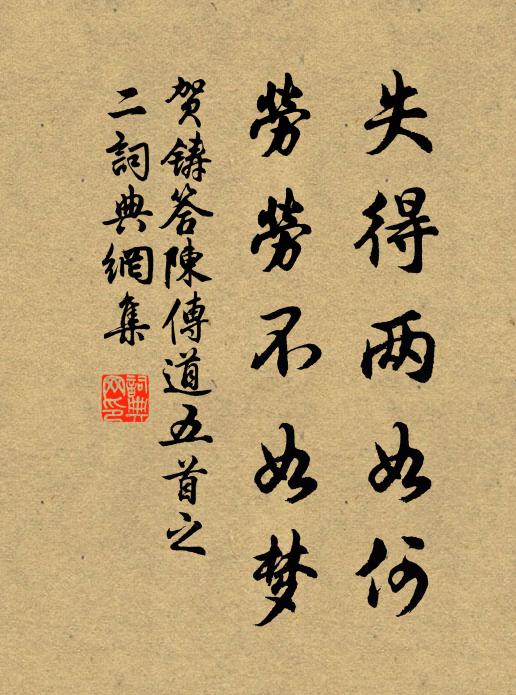 失得两如何
劳劳不如梦
贺铸答陳傳道五首之
二詞典網集
詞典网印